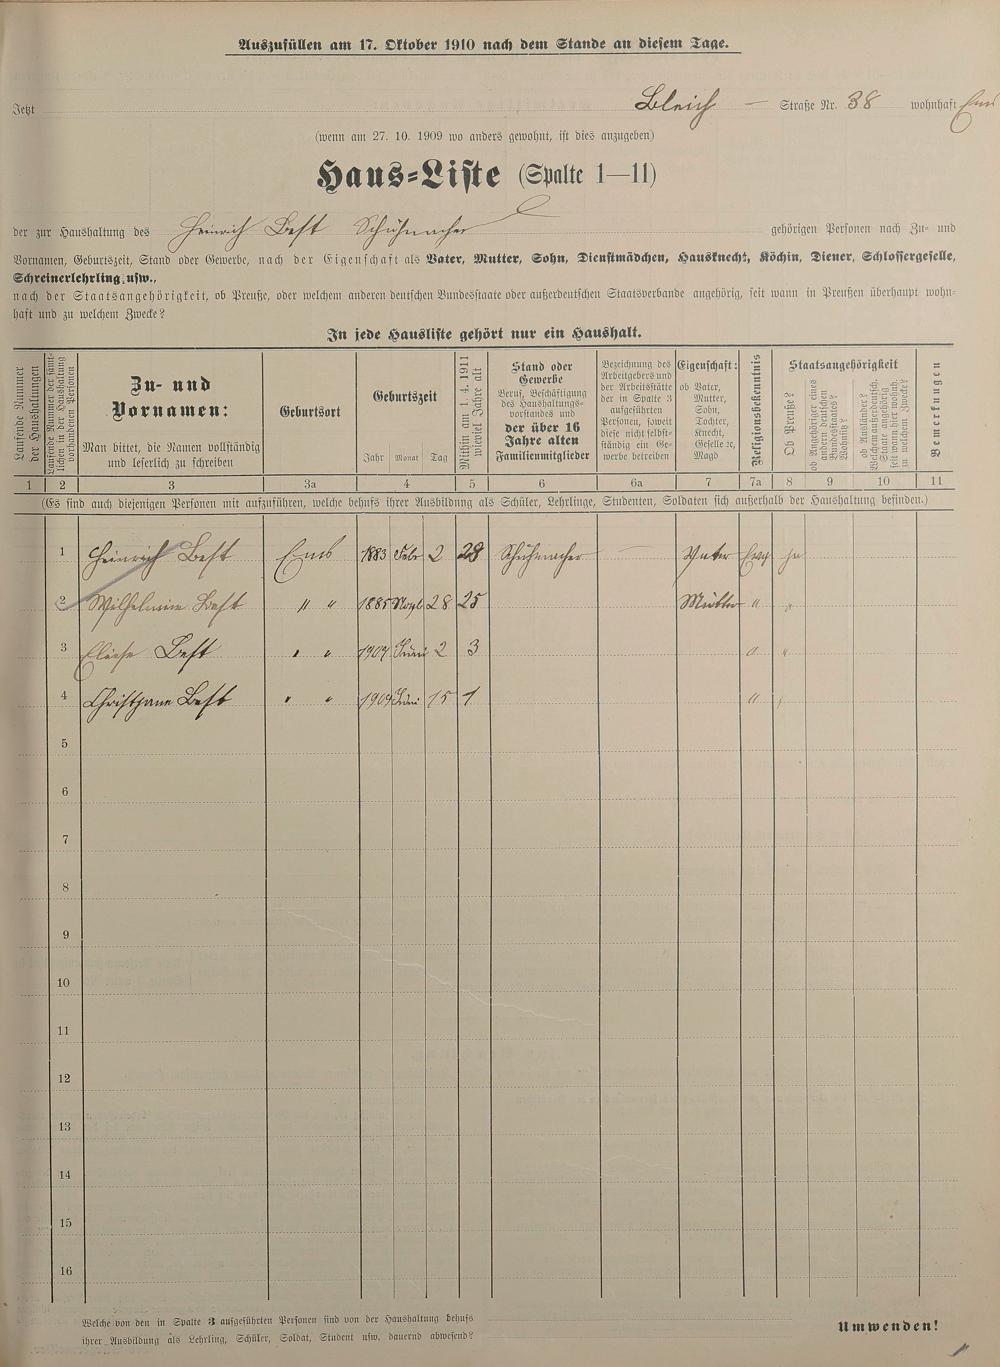 Auszufüllen am 17. Oktober 1910 nach dem Stande an diesem Tage.
Jetzt Bleich — Straße Nr. 38 wohnhaft Ems
(wenn am 27. 10. 1909 wo anders gewohnt, ist dies anzugeben)
Haus-Liste (Spalte 1—11)
der zur Haushaltung des Heinrich Best Schuhmacher gehörigen Personen nach Zu- und
Vornamen, Geburtszeit, Stand oder Gewerbe, nach der Eigenschaft als Vater, Mutter, Sohn, Dienstmädchen, Hausknecht, Köchin, Diener, Schlossergeselle,
Schreinerlehrling usw.,
nach der Staatsangehörigkeit, ob Preuße, oder welchem anderen deutschen Bundesstaate oder außerdeutschen Staatsverbande angehörig, seit wann in Preußen überhaupt wohn-
haft und zu welchem Zwecke?
In jede Hausliste gehört nur ein Haushalt.
Laufende Nummer
der Haushaltungen
Laufende Nummer der sämt-
lichen in der Haushaltung
vorhandenen Personen
Zu- und
Vornamen:
Man bittet, die Namen vollständig
und leserlich zu schreiben
Geburtsort
Geburtszeit
Jahr Monat Tag
Mithin am 1. 4. 1911
wieviel Jahre alt
Stand oder
Gewerbe
Beruf, Beschäftigung
des Haushaltungs-
vorstandes und
der über 16
Jahre alten
Familienmitglieder
Bezeichnung des
Arbeitgebers und
der Arbeitsstätte
der in Spalte 3
aufgeführten
Personen, soweit
diese nicht selbst-
ständig ein Ge-
werbe betreiben
Eigenschaft:
ob Vater,
Mutter,
Sohn,
Tochter,
Knecht,
Geselle ec,
Magd
Religionsbekenntnis
Staatsangehörigkeit
Ob Preuße?
ob Angehöriger eines
andern deutschen
Bundesstaates?
Welches?
ob Ausländer?
Welchem außerdeutsch.
Staate angehörig
seit wann hier wohnh.
zu welchem Zwecke?
Bemerkungen
1 2 3 3a 4 5 6 6a 7 7a 8 9 10 11
(Es sind auch diejenigen Personen mit aufzuführen, welche behufs ihrer Ausbildung als Schüler, Lehrlinge, Studenten, Soldaten sich außerhalb der Haushaltung befinden.)
1 Heinrich Best Ems 1883 Febr 2 28 Schuhmacher — Vater Evg ja
2 Wilhelmine Best " " 1885 28 25 Mutter " "
3 Eliese Best " " 1907 Juni 2 3 " "
4 Christjane Best " " 1909 Juni 15 1 " "
5
6
7
8
9
10
11
12
13
14
15
16
Welche von den in Spalte 3 aufgeführten Personen sind von der Haushaltung behufs
ihrer Ausbildung als Lehrling, Schüler, Soldat, Student usw. dauernd abwesend?
Umwenden!